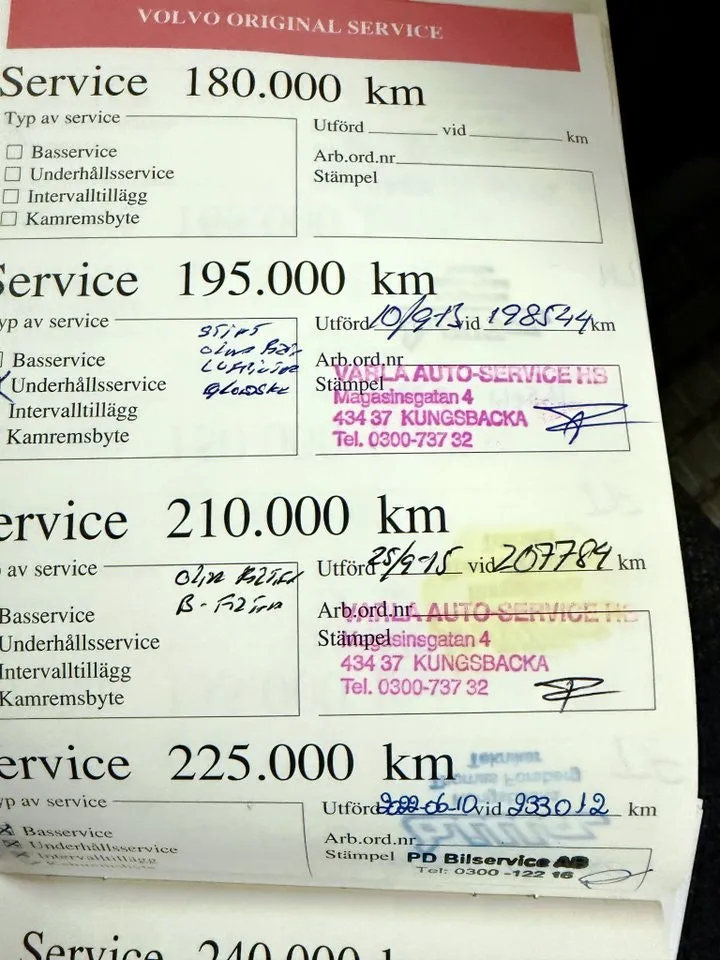 VOLVO ORIGINAL SERVICE
Service 180.000 km
Typ av service
Utförd vid km
Basservice
Arb.ord.nr
Underhållsservice
Stämpel
Intervalltillägg
Kamremsbyte
Service 195.000 km
yp av service
Utförd 10/9-13 vid 198544 km
Basservice
Arb.ord.nr
Underhållsservice
Stämpel
Intervalltillägg
Kamremsbyte
VARLA AUTO-SERVICE HB
Magasinsgatan 4
434 37 KUNGSBACKA
Tel. 0300-737 32
ervice 210.000 km
av service
Olja Filter
B-Filter
Utförd 25/9-15 vid 207784 km
Basservice
Arb.ord.nr
Underhållsservice
Stämpel
Intervalltillägg
Kamremsbyte
VARLA AUTO-SERVICE HB
Magasinsgatan 4
434 37 KUNGSBACKA
Tel. 0300-737 32
ervice 225.000 km
yp av service
Utförd 2022-06-10 vid 233012 km
Basservice
Arb.ord.nr
Underhållsservice
Stämpel
Intervalltillägg
Kamremsbyte
PD Bilservice AB
Tel: 0300-122 16
Service 240.000